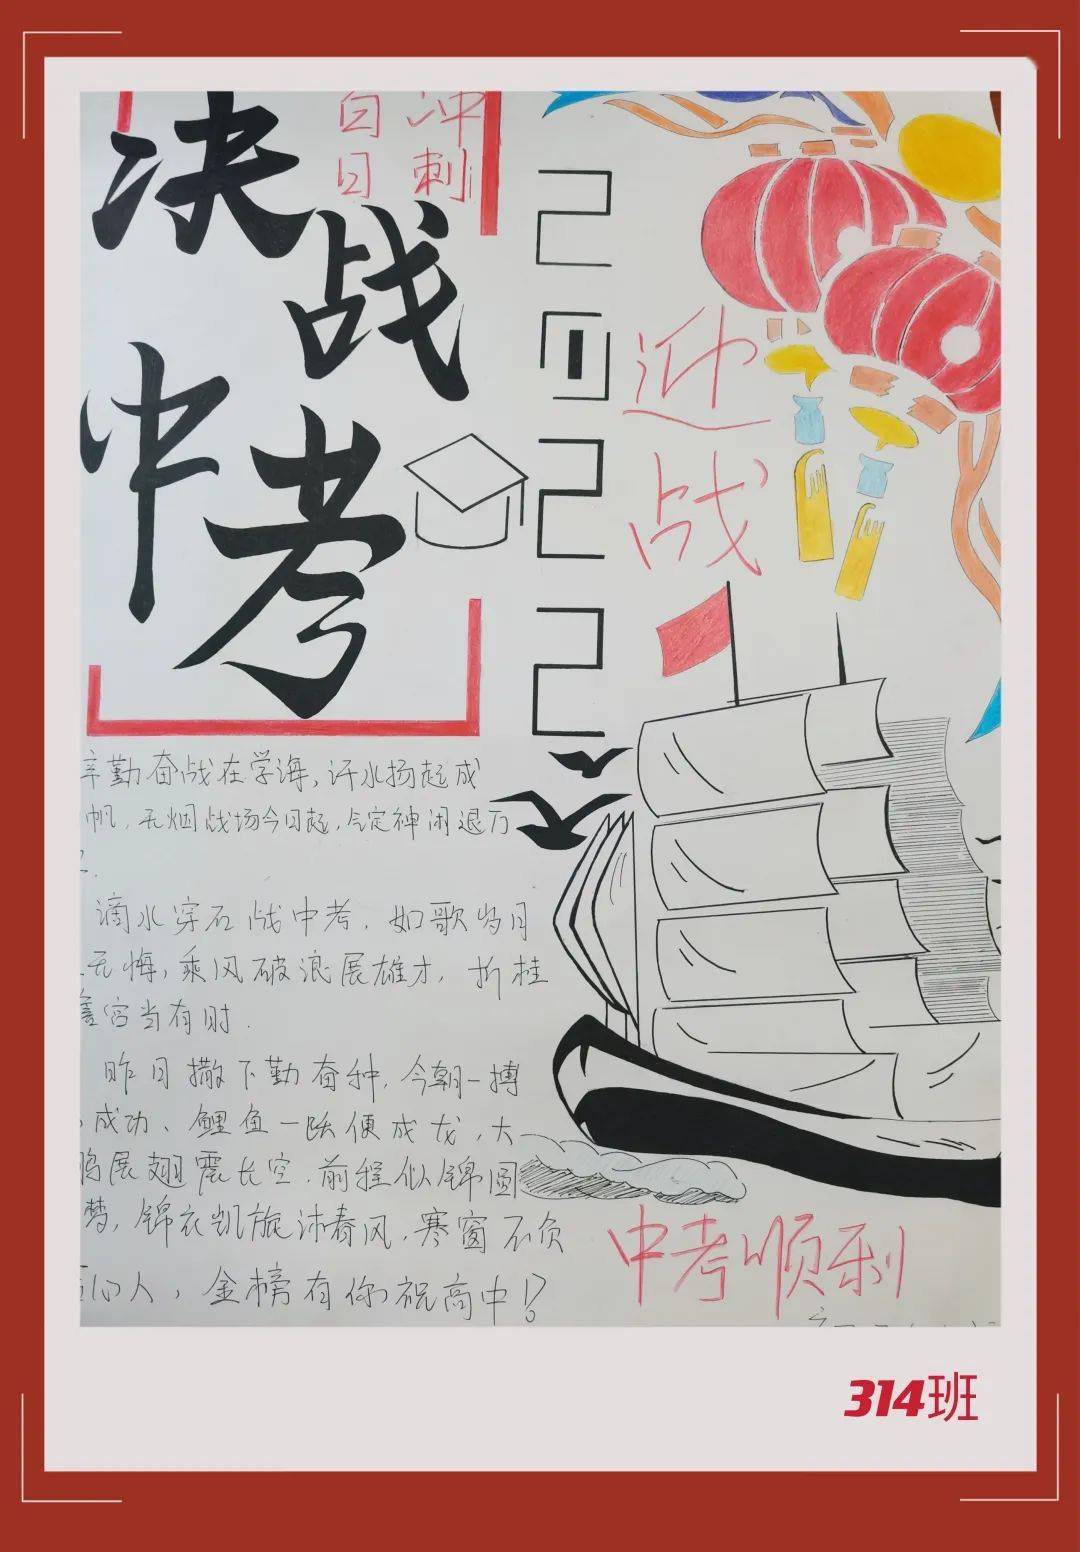 决战
中考
日
冲刺
2022
迎战
辛勤奋战在学海,汗水扬起成
帆,无烟战场今日起,气定神闲退万
滴水穿石战中考,如歌岁月
无悔,乘风破浪展雄才,折桂
宫当有时.
昨日撒下勤奋种,今朝一搏
成功、鲤鱼一跃便成龙,大
鹏展翅震长空.前程似锦圆
梦,锦衣凯旋沐春风.寒窗不负
心人,金榜有你祝高中!
中考顺利
314班